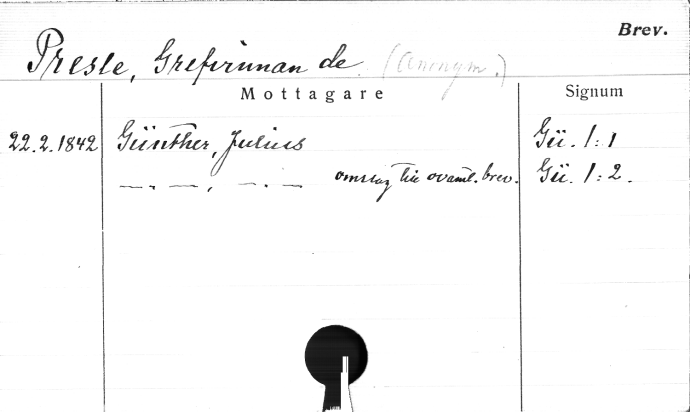 Brev.
Presle, Grefvinnan de (Anonym.)
Mottagare Signum
22.2.1842 Günther, Julius Gü. 1:1
—.—, —.— omslag till ovannl. brev. Gü. 1:2.